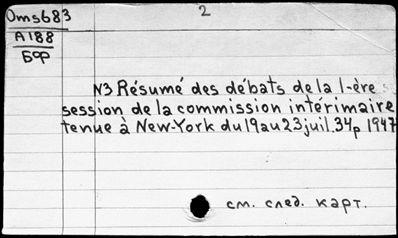 Oms683
2
A188
Бфр
N3 Résumé des débats de la I-ère
session de la commission intérimaire
tenue à New-York du 19 au 23 juil. 34p 1947
см. след. карт.